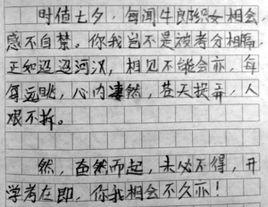 时值七夕，每闻牛郎织女相会，
感不自禁。你我岂不是被考分相隔，
正如迢迢河汉，相见不能会亦，每
每远眺，心内凄然，苍天捉弄，人
艰不拆。
然，奋然而起，未必不得，开
学考在即，你我相会不久亦！